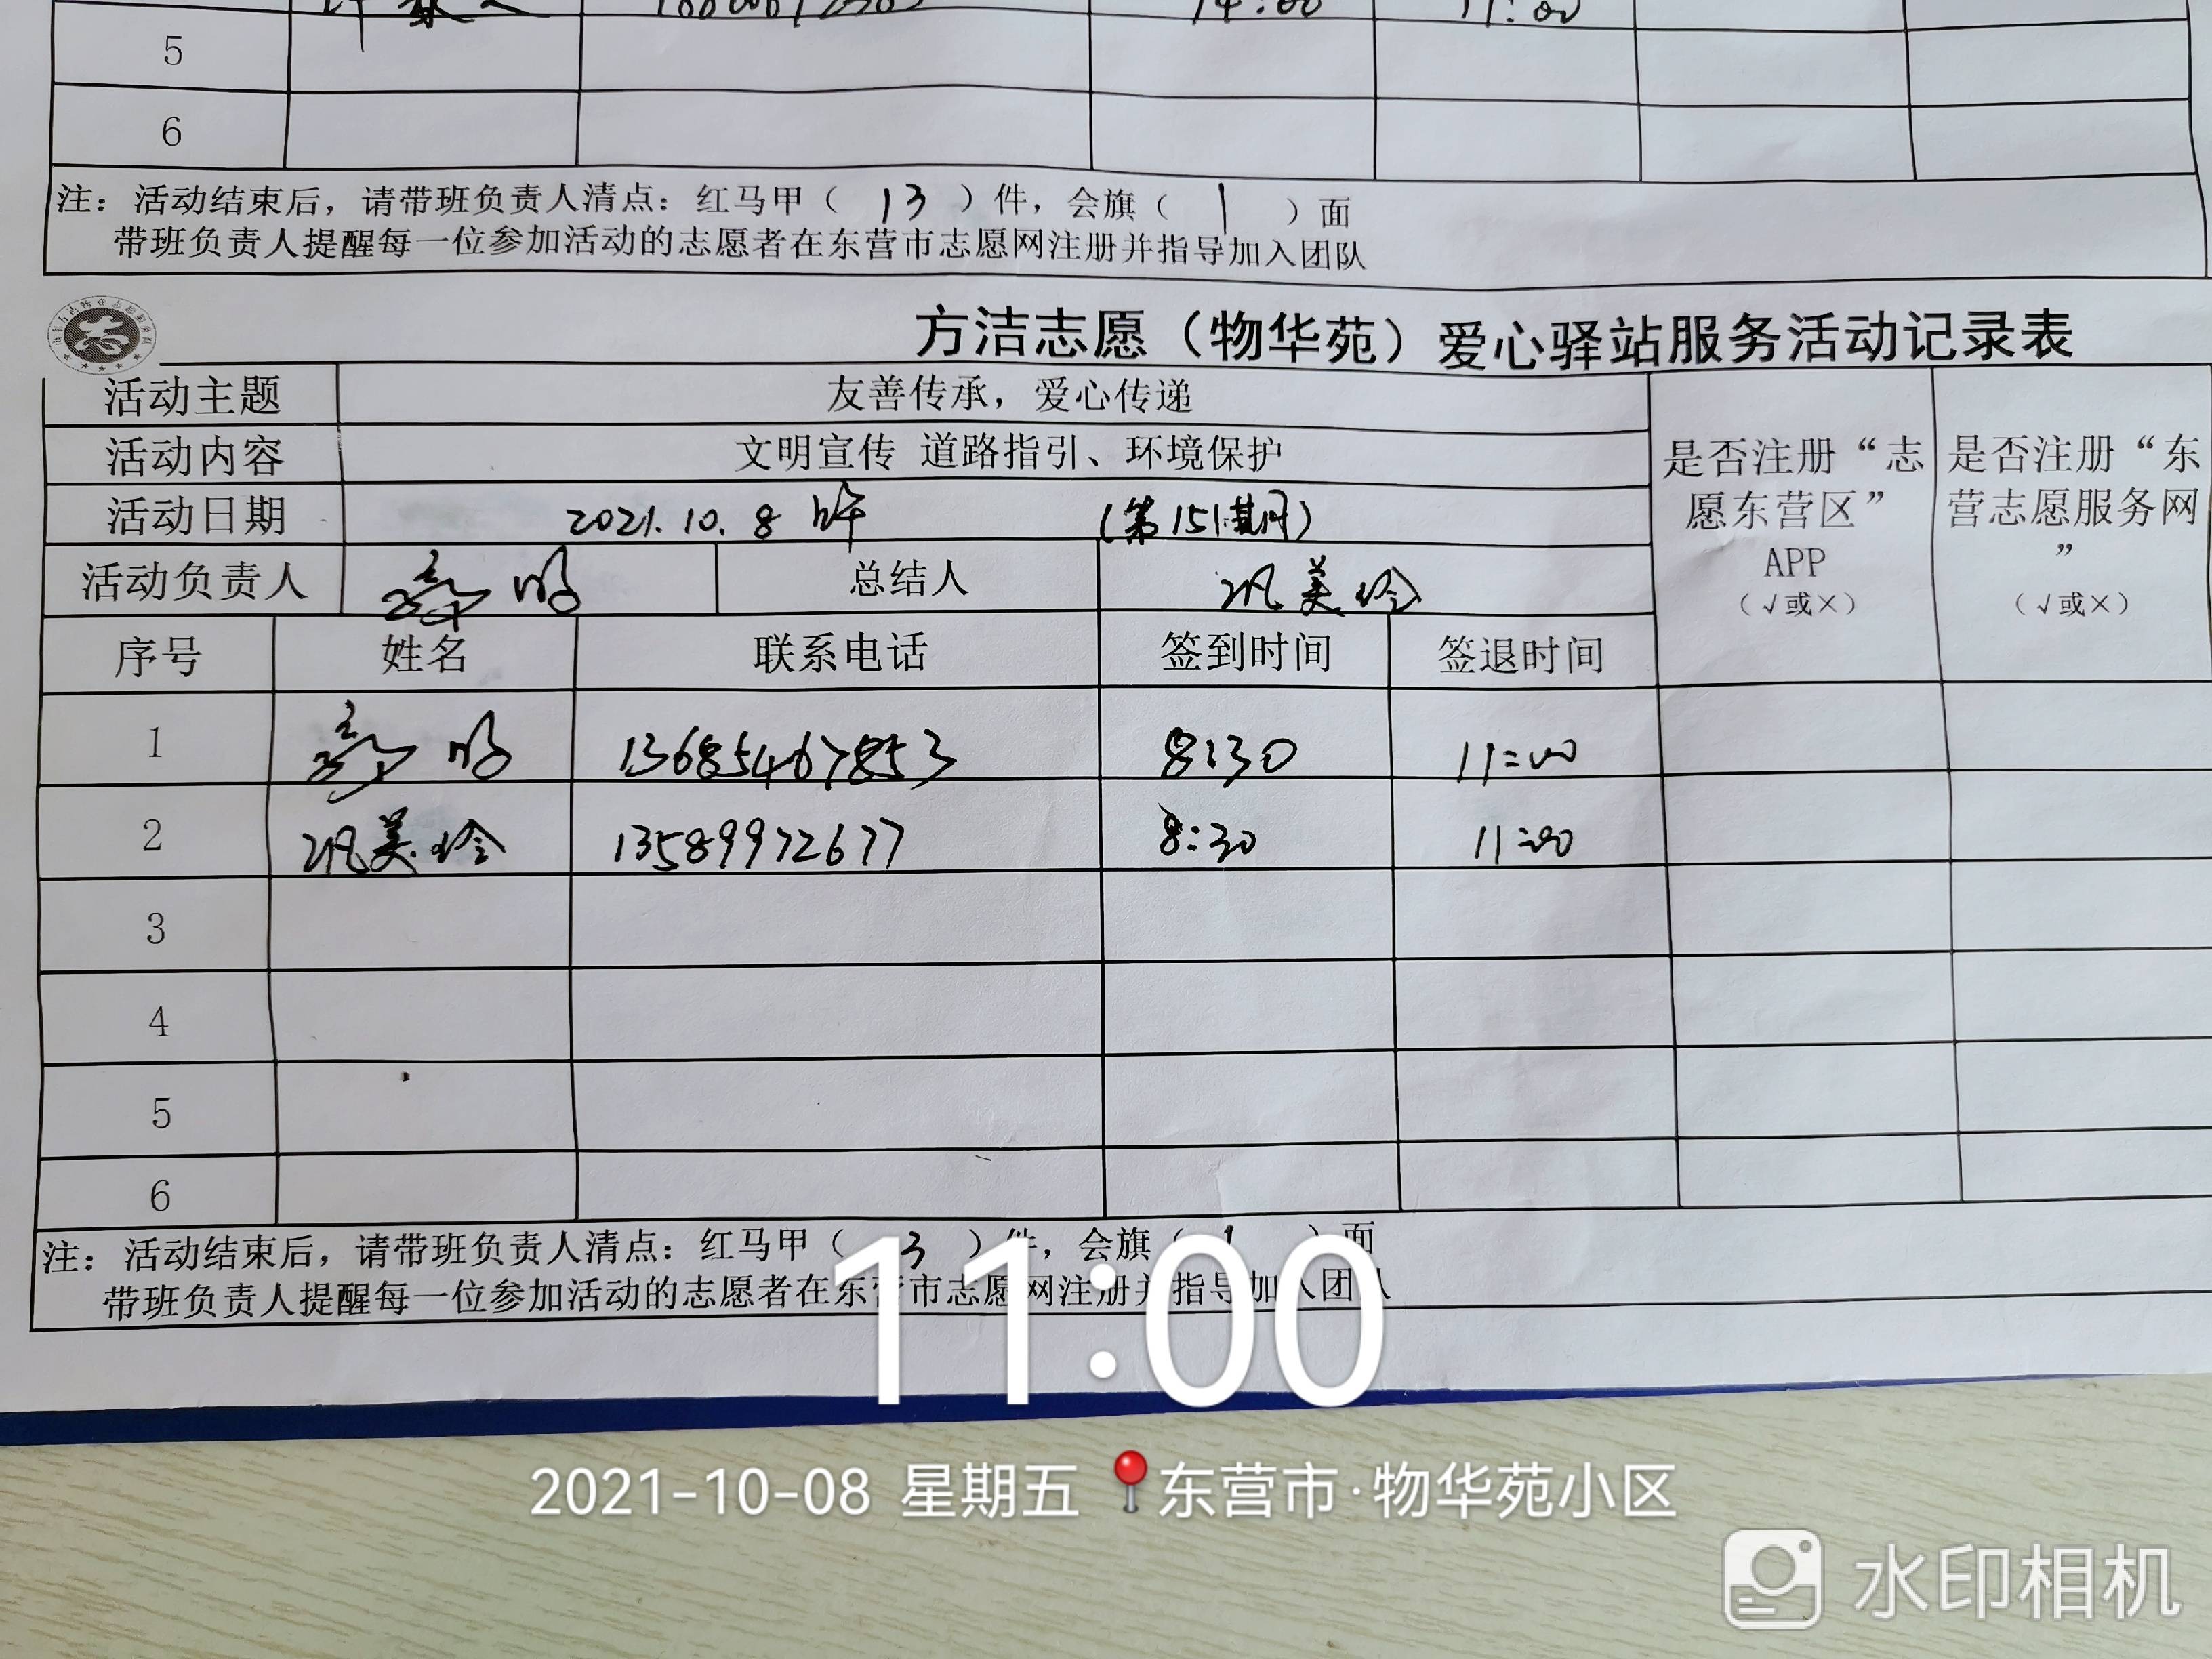 14:00 17:00
5
6
注：活动结束后，请带班负责人清点：红马甲（ 13 ）件，会旗（ 1 ）面
带班负责人提醒每一位参加活动的志愿者在东营市志愿网注册并指导加入团队
方洁志愿（物华苑）爱心驿站服务活动记录表
活动主题 友善传承，爱心传递
活动内容 文明宣传 道路指引、环境保护
活动日期 2021.10.8 (第151期)
是否注册“志愿东营区”APP（√或×）
是否注册“东营志愿服务网”（√或×）
活动负责人 总结人 巩美玲
序号 姓名 联系电话 签到时间 签退时间
1 13685467853 8:30 11:00
2 巩美玲 13589972677 8:30 11:00
3
4
5
6
注：活动结束后，请带班负责人清点：红马甲（ 3 ）件，会旗（ 1 ）面
带班负责人提醒每一位参加活动的志愿者在东营市志愿网注册并指导加入团队
11:00
2021-10-08 星期五 东营市·物华苑小区
水印相机